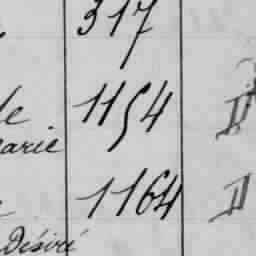 317
le 1154 D
arie
1164 D
Désiré